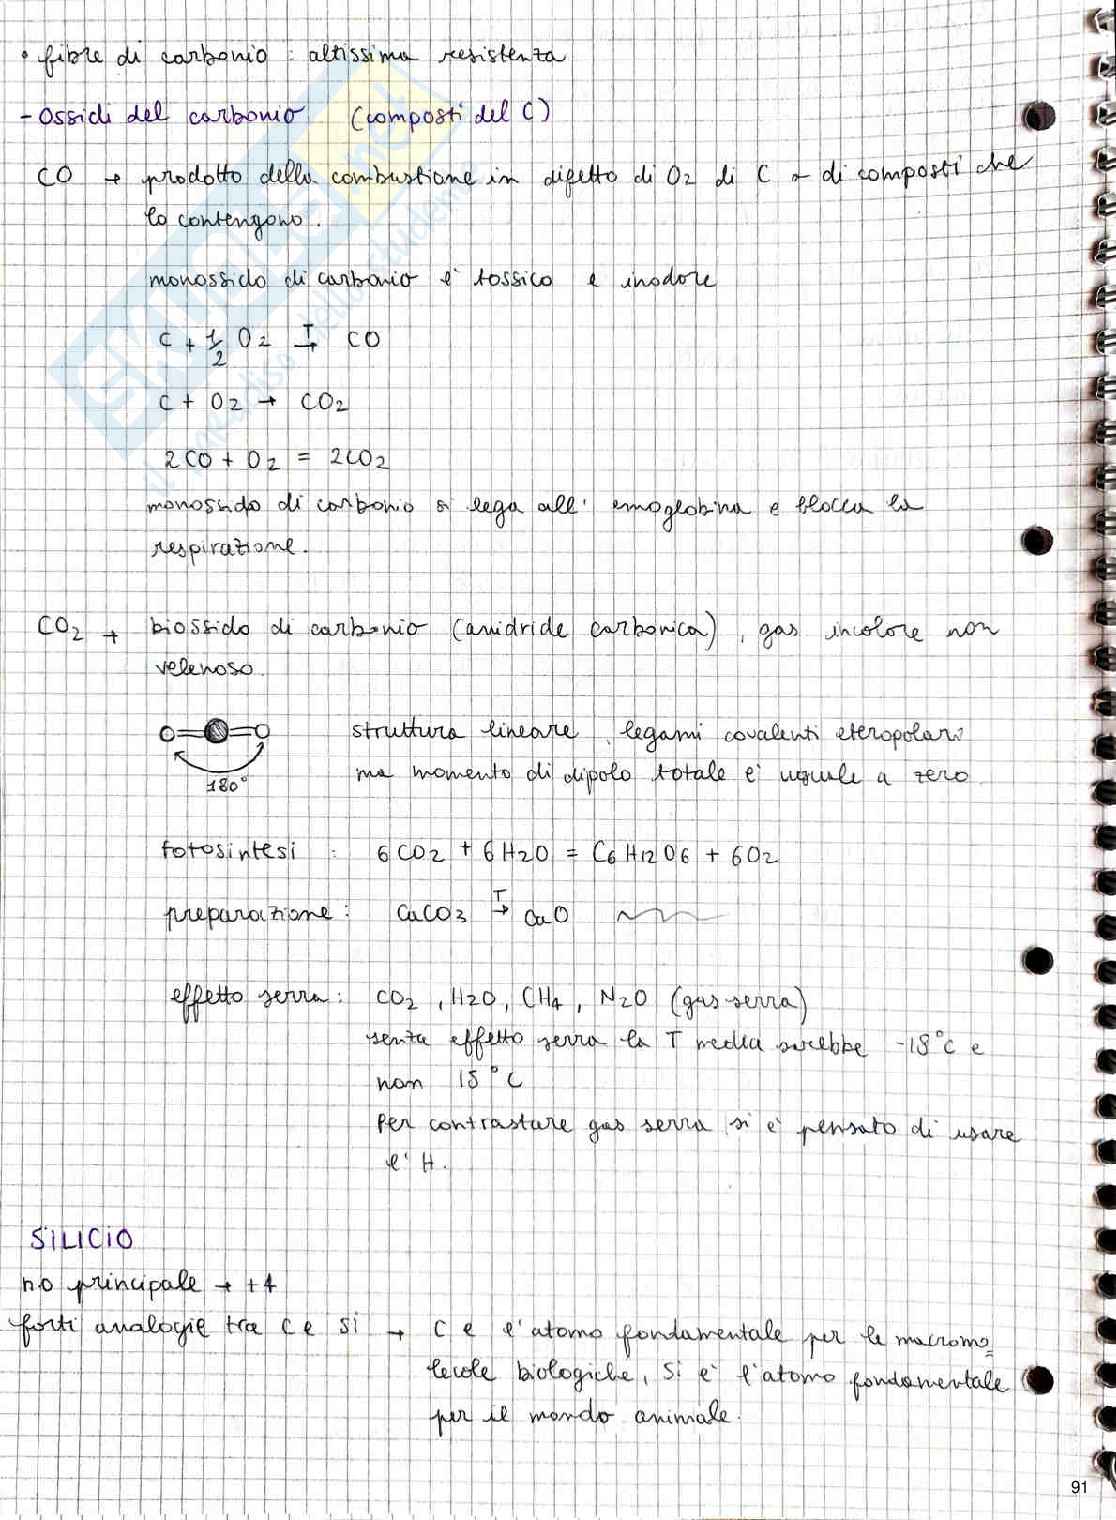 • fibre di carbonio : altissima resistenza
- Ossidi del carbonio (composti del C)
CO → prodotto della combustione in difetto di O2 di C o di composti che
lo contengono.
monossido di carbonio è tossico e inodore
C + 1/2 O2 →T CO
C + O2 → CO2
2CO + O2 = 2CO2
monossido di carbonio si lega all' emoglobina e blocca la
respirazione.
CO2 → biossido di carbonio (anidride carbonica), gas incolore non
velenoso.
struttura lineare, legami covalenti eteropolari
ma momento di dipolo totale è uguale a zero
180°
fotosintesi : 6CO2 + 6H2O = C6H12O6 + 6O2
preparazione: CaCO3 →T CaO
effetto serra: CO2, H2O, CH4, N2O (gas serra)
senza effetto serra la T media sarebbe -18°C e
non 15°C
Per contrastare gas serra si è pensato di usare
l' H.
SILICIO
n.o principale → +4
forti analogie tra C e Si → C è l'atomo fondamentale per le macromo=
lecole biologiche, Si è l'atomo fondamentale
per il mondo animale.
91
SKUOLA.net
il paradiso dello studente